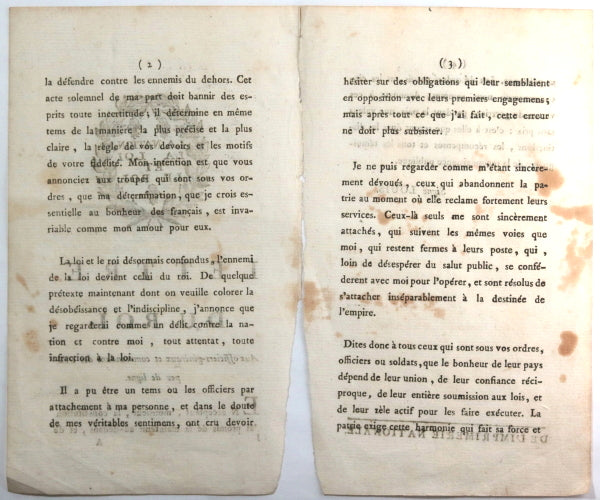 ( 2 )
la défendre contre les ennemis du dehors. Cet
acte solemnel de ma part doit bannir des es-
prits toute incertitude ; il détermine en même
tems de la manière la plus précise et la plus
claire , la règle de vos devoirs et les motifs
de votre fidélité. Mon intention est que vous
annonciez aux troupes qui sont sous vos or-
dres , que ma détermination, que je crois es-
sentielle au bonheur des français , est inva-
riable comme mon amour pour eux.
La loi et le roi désormais confondus , l'ennemi
de la loi devient celui du roi. De quelque
prétexte maintenant dont on veuille colorer la
désobéissance et l'indiscipline , j'annonce que
je regarderai comme un délit contre la na-
tion et contre moi , tout attentat , toute
infraction à la loi.
Il a pu être un tems ou les officiers par
attachement à ma personne , et dans le doute
de mes véritables sentimens , ont cru devoir
A
( 3 )
hésiter sur des obligations qui leur semblaient
en opposition avec leurs premiers engagemens ;
mais après tout ce que j'ai fait , cette erreur
ne doit plus subsister.
Je ne puis regarder comme m'étant sincère-
ment dévoués , ceux qui abandonnent la pa-
trie au moment où elle reclame fortement leurs
services. Ceux-là seuls me sont sincèrement
attachés , qui suivent les mêmes voies que
moi , qui restent fermes à leurs poste , qui ,
loin de désespérer du salut public , se confé-
dèrent avec moi pour l'opérer, et sont résolus de
s'attacher inséparablement à la destinée de
l'empire.
Dites donc à tous ceux qui sont sous vos ordres,
officiers ou soldats, que le bonheur de leur pays
dépend de leur union , de leur confiance réci-
proque , de leur entière soumission aux lois , et
de leur zèle actif pour les faire exécuter. La
patrie exige cette harmonie qui fait sa force et